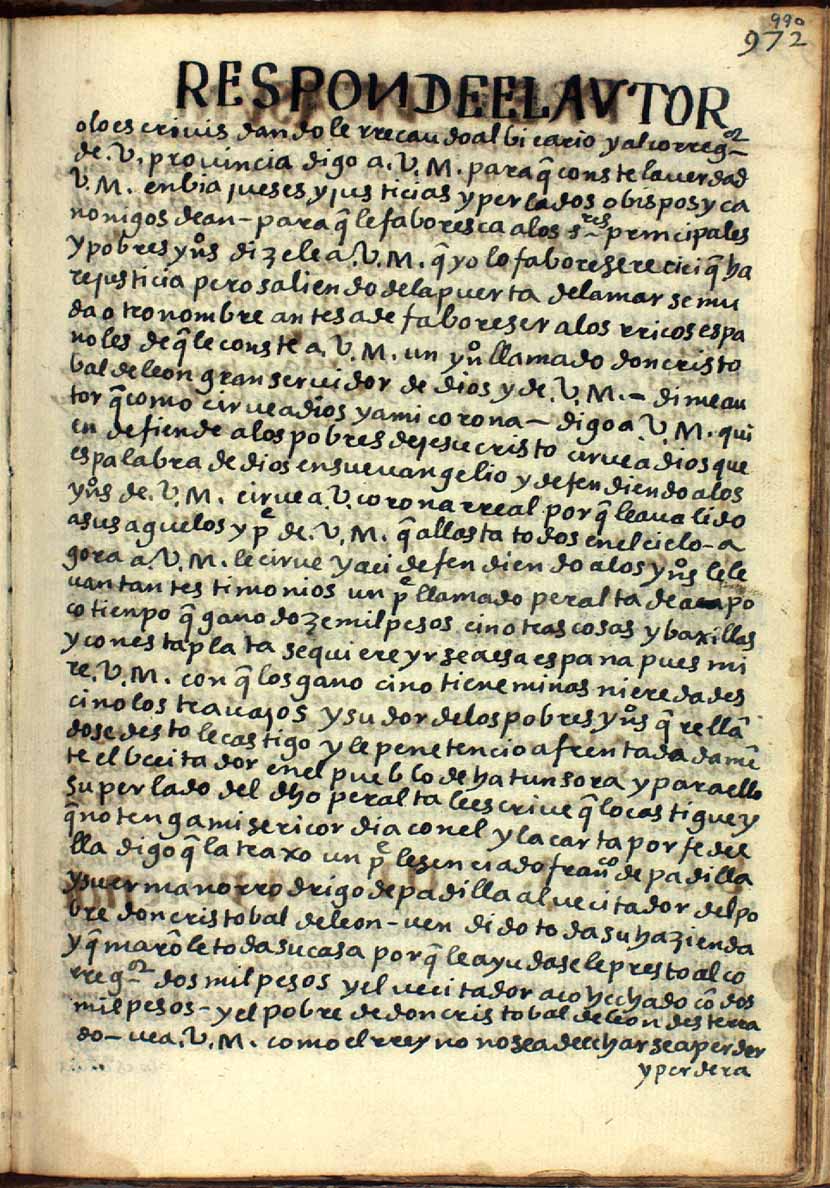 990
972
RESPONDE EL AVTOR
o lo escrivis dandole rrecaudo al bicario y al correg.or
de .V. provincia digo a .V.M. para q̃ conste la uerdad
V.M. enbia jueses y justicias y perlados obispos y ca
nonigos dean - para q̃ le faboresca a los s.res prencipales
y pobres yn͠s dizele a .V.M. q̃ yo lo faboresere recici q̃ ha
re justicia pero saliendo de la puerta de la mar se mu
da otro nombre antes a de faboreser a los rricos espa
noles de q̃ le conste a .V.M. un yn͠ llamado don cristo
bal de leon gran seruidor de dios y de .V.M. - dime au
tor q̃ como cirue a dios y a mi corona - digo a .V.M. qui
en defiende a los pobres de jesucristo cirue a dios que
es palabra de dios en su euangelio y defendiendo a los
yn͠s de .V.M. cirue a .V. corona rreal por q̃ le a ualido
a sus aguelos y p.e de .V.M. q̃ alla sta todos en el cielo - a
gora a .V.M. le cirue y aci defendiendo a los yn͠s le le
uantan testimonios un p.e llamado peralta de aca po
co tienpo q̃ gano doze mil pesos cino tras cosas y baxillas
y con esta plata se quiere yrse a esa espana pues mi
re .V.M. con q̃ los gano ci no tiene minas ni eredades
cino los trauajos y sudor de los pobres yn͠s q̃ rellã
dose desto le castigo y le penetencio afrentadadamẽ
te el becitador en el pueblo de hatunsora y para ello
su perlado del dho peralta le escriue q̃ lo castigue y
q̃ no tenga misericordia con el y la carta por fe de e
lla digo q̃ la traxo un p.e lesenciado fran.co de padilla
y su ermano rrodrigo de padilla al uecitador del po
bre don cristobal de leon - uendido toda su hazienda
y q̃marõle toda su casa por q̃ le ayudase le presto al co
rreg.or dos mil pesos y el uecitador acohechado cõ dos
mil pesos - y el pobre de don cristobal de leon desterra
do - uea .V.M. como el rreyno no se a de echarse a perder
y perdera